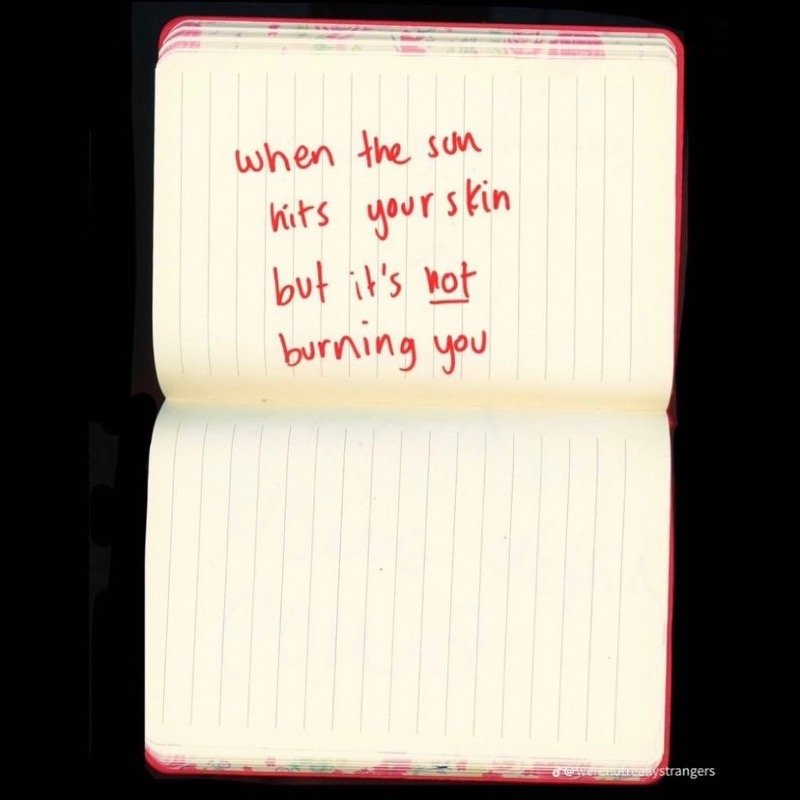 when the sun
hits your skin
but it's not
burning you
@werenotreallystrangers